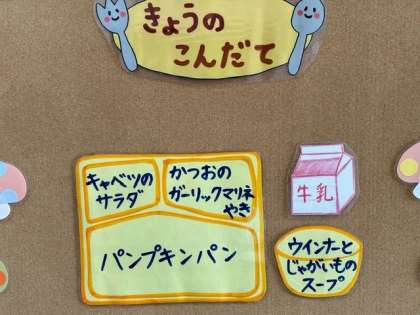 きょうの
こんだて
キャベツの
サラダ
かつおの
ガーリックマリネ
やき
牛乳
パンプキンパン
ウインナーと
じゃがいもの
スープ